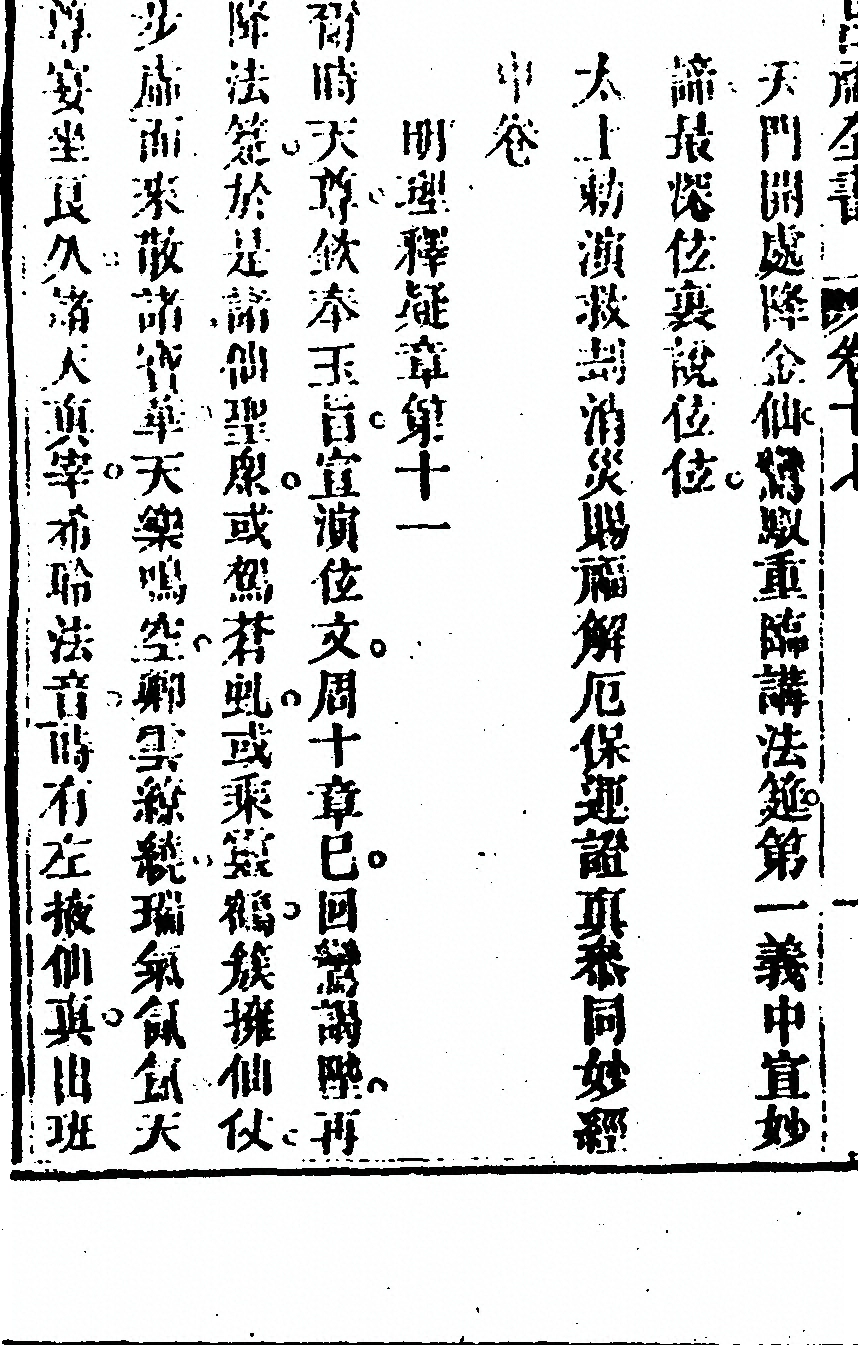 呂祖全書 卷十七 一
天門開處降金仙鸞馭重臨講法筵第一義中宣妙
諦最深位裏說位位
太上勅演救刦消災賜福解厄保運證真叅同妙經
中卷
明理釋疑章第十一
爾時天尊欽奉玉旨宣演位文周十章已回鸞謁陛再
降法筵於是諸仙聖衆或駕蒼虬或乘鸞鶴簇擁仙仗
步虛而來散諸寶華天樂鳴空卿雲繚繞瑞氣氤氳天
尊宴坐良久諸天真宰希聆法音時有左掖仙真出班